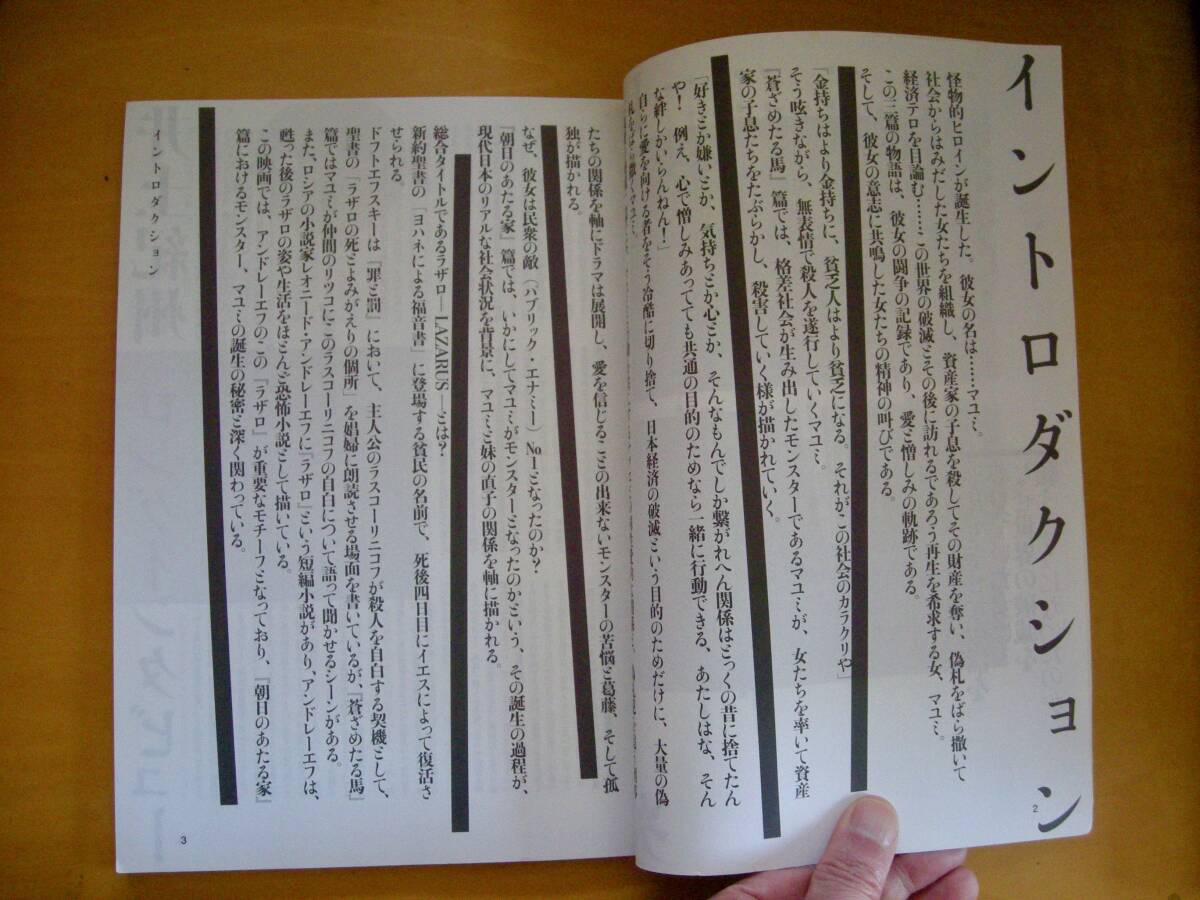 イントロダクション
怪物的ヒロインが誕生した。彼女の名は……マユミ。
社会からはみだした女たちを組織し、資産家の子息を殺してその財産を奪い、偽札をばら撒いて
経済テロを目論む……この世界の破滅とその後に訪れるであろう再生を希求する女、マユミ。
この三篇の物語は、彼女の闘争の記録であり、愛と憎しみの軌跡である。
そして、彼女の意志に共鳴した女たちの精神の叫びである。
「金持ちはより金持ちに、貧乏人はより貧乏になる。それがこの社会のカラクリや」
そう呟きながら、無表情で殺人を遂行していくマユミ。
『蒼ざめたる馬』篇では、格差社会が生み出したモンスターであるマユミが、女たちを率いて資産
家の子息たちをたぶらかし、殺害していく様が描かれていく。
「好きとか嫌いとか、気持ちとか心とか、そんなもんでしか繋がれへん関係はとっくの昔に捨てたん
や！ 例え、心で憎しみあってても共通の目的のためなら一緒に行動できる、あたしはな、そん
な絆しかいらんねん！」
自らに愛を向ける者をそう冷酷に切り捨て、日本経済の破滅という目的のためだけに、大量の偽
2
たちの関係を軸にドラマは展開し、愛を信じることの出来ないモンスターの苦悩と葛藤、そして孤
独が描かれる。
なぜ、彼女は民衆の敵（パブリック・エナミー）No1となったのか？
『朝日のあたる家』篇では、いかにしてマユミがモンスターとなったのかという、その誕生の過程が、
現代日本のリアルな社会状況を背景に、マユミと妹の直子の関係を軸に描かれる。
総合タイトルであるラザロ―LAZARUS―とは？
新約聖書の「ヨハネによる福音書」に登場する貧民の名前で、死後四日目にイエスによって復活さ
せられる。
ドフトエフスキーは『罪と罰』において、主人公のラスコーリニコフが殺人を自白する契機として、
聖書の「ラザロの死とよみがえりの個所」を娼婦に朗読させる場面を書いているが、『蒼ざめたる馬』
篇ではマユミが仲間のリツコにこのラスコーリニコフの自白について語って聞かせるシーンがある。
また、ロシアの小説家レオニード・アンドレーエフに『ラザロ』という短編小説があり、アンドレーエフは、
甦った後のラザロの姿や生活をほとんど恐怖小説として描いている。
この映画では、アンドレーエフのこの『ラザロ』が重要なモチーフとなっており、『朝日のあたる家』
篇におけるモンスター、マユミの誕生の秘密と深く関わっている。
イントロダクション
3